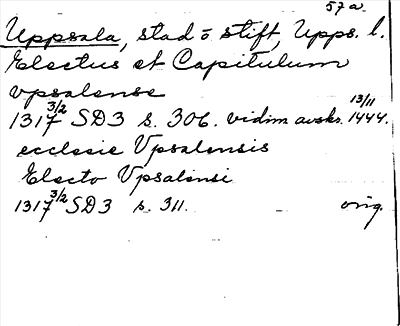 57a.
Uppsala, stad o stift, Upps. l.
Electus et Capitulum
vpsalense
1317 3/2 SD3 s. 306. vidim avskr. 13/11 1444.
ecclesie Vpsalensis
Electo Vpsalensi
1317 3/2 SD3 s. 311. orig.